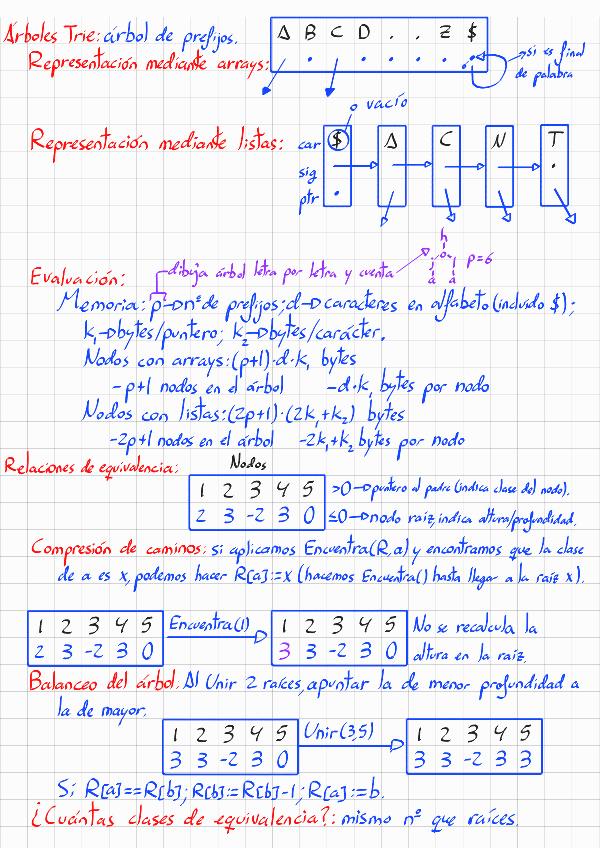 Árboles Trie: árbol de prefijos.
A B C D . . Z $
Representación mediante arrays:
si es final
de palabra
vacío
Representación mediante listas:
car $ A C N T
sig
ptr
h
o
j l
a a
p=6
dibuja árbol letra por letra y cuenta
Evaluación:
Memoria: p→nº de prefijos; d→caracteres en alfabeto (incluido $);
k₁→bytes/puntero; k₂→bytes/carácter.
Nodos con arrays: (p+1)·d·k₁ bytes
-p+1 nodos en el árbol -d·k₁ bytes por nodo
Nodos con listas: (2p+1)·(2k₁+k₂) bytes
-2p+1 nodos en el árbol -2k₁+k₂ bytes por nodo
Relaciones de equivalencia:
Nodos
1 2 3 4 5
2 3 -2 3 0
>0→puntero al padre (indica clase del nodo).
≤0→nodo raíz, indica altura/profundidad.
Compresión de caminos: si aplicamos Encuentra(R,a) y encontramos que la clase
de a es x, podemos hacer R[a]:=x (hacemos Encuentra() hasta llegar a la raíz x).
1 2 3 4 5
2 3 -2 3 0
Encuentra(1)
1 2 3 4 5
3 3 -2 3 0
No se recalcula la
altura en la raíz.
Balanceo del árbol: Al Unir 2 raíces, apuntar la de menor profundidad a
la de mayor.
1 2 3 4 5
3 3 -2 3 0
Unir(3,5)
1 2 3 4 5
3 3 -2 3 3
Si R[a]==R[b]; R[b]:=R[b]-1; R[a]:=b.
¿Cuántas clases de equivalencia?: mismo nº que raíces.